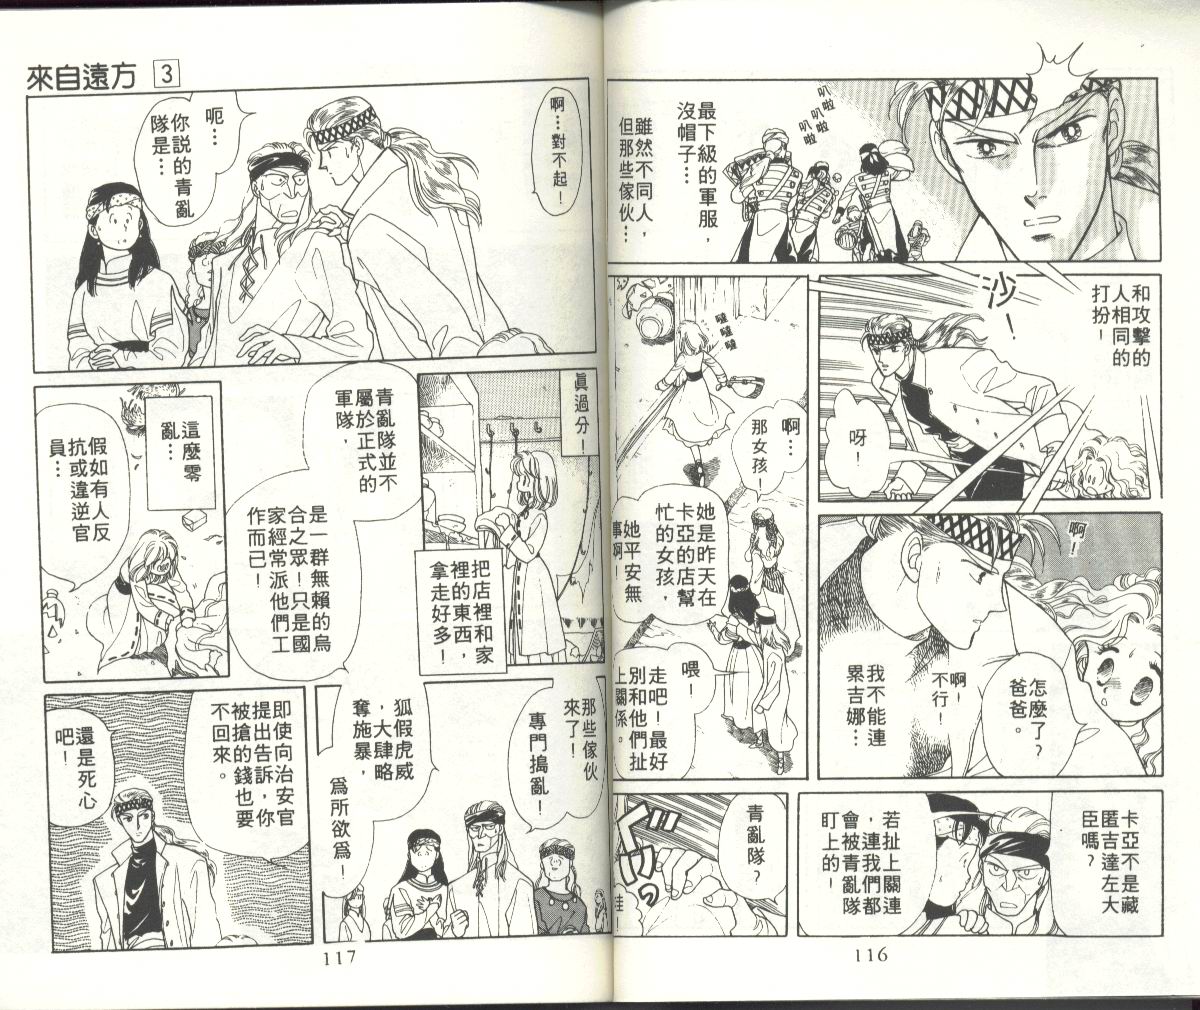 最下級的軍服，
沒帽子…
雖然不同人，
但那些傢伙…
叭啦
叭啦
叭啦
和攻擊的
人相同的
打扮！
沙！
呀！
噠
噠
噠
啊…
那女孩！
她是昨天在
卡亞的店幫
忙的女孩，
她平安無
事啊！
喂！
走吧！最好
別和他們扯
上關係。
啊！
怎麼了？
爸爸。
啊！
不行！
我不能連
累吉娜…
卡亞不是藏
匿吉達左大
臣嗎？
若扯上關連
，連我們都
會被青亂隊
盯上的！
青亂隊？
哇！
116
來自遠方 3
啊…對不起！
呃…
你說的青亂
隊是…
真過分！
把店裡和家
裡的東西，
拿走好多！
青亂隊並不
屬於正式的
軍隊，
是一群無賴的烏
合之眾！只是國
家經常派他們工
作而已！
這麼零
亂…
假如有人反
抗或違逆官
員…
那些傢伙
來了！
專門搗亂！
狐假虎威
，大肆略
奪施暴，
為所欲為！
即使向治安官
提出告訴，你
被搶的錢也要
不回來。
還是死心
吧！
117